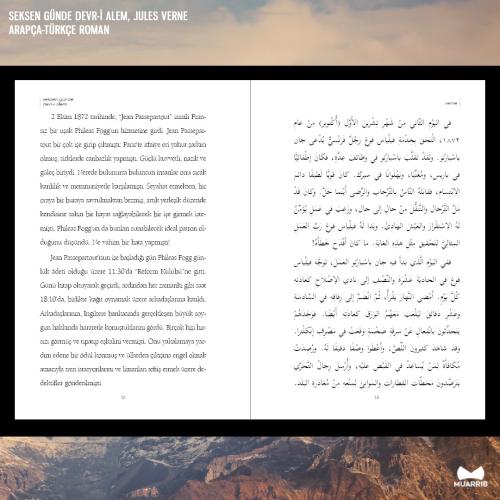 SEKSEN GÜNDE DEVR-İ ALEM, JULES VERNE
ARAPÇA-TÜRKÇE ROMAN
seksen günde
devr-i alem
2 Ekim 1872 tarihinde, "Jean Passepartout" isimli Fran-
sız bir uşak Phileas Fogg'un hizmetine girdi. Jean Passepar-
tout bir çok işe girip çıkmıştı. Paris'te itfaiye eri yahut şarkıcı
olmuş, sirklerde canbazlık yapmıştı. Güçlü kuvvetli, nazik ve
güleç biriydi. Nerede bulunursa bulunsun insanlar onu sıcak
kanlılık ve memnuniyetle karşılamıştı. Seyahat etmekten, bir
oraya bir buraya savrulmaktan bezmiş, artık yerleşik düzende
kendisine sakin bir hayat sağlayabilecek bir işe girmek iste-
mişti. Phileas Fogg'un da bunları sunabilecek ideal patron ol-
duğunu düşündü. Ne vahim bir hata yapmıştı!
Jean Passepartout'nun işe başladığı gün Philleas Fogg gün-
lük âdeti olduğu üzere 11:30'da "Reform Kulübü"ne gitti.
Günü kitap okuyarak geçirdi, ardından her zamanki gibi saat
18:10'da, birlikte kağıt oynamak üzere arkadaşlarına katıldı.
Arkadaşlarının, İngiltere bankasında gerçekleşen büyük soy-
gun hakkında hararetle konuştuklarını gördü. Birçok kişi hır-
sızı görmüş ve tıpatıp eşkalini vermişti. Onu yakalamaya yar-
dım edene bir ödül konmuş ve ülkeden çıkışına engel olmak
amacıyla tren istasyonlarını ve limanları teftiş etmek üzere de-
dektifler gönderilmişti.
12
verne
في اليَوْمِ الثَّانِي مِنْ شَهْرِ تِشْرِينَ الأَوَّلِ (أُكْتُوبر) مِنْ عَامِ
١٨٧٢، الْتَحَقَ بِخِدْمَةِ فِيلْيَاس فوغ رَجُلٌ فَرَنْسِيٌّ يُدْعَى جان
باسْبارْتو. وَلَقَدْ تَقَلَّبَ باسْبارْتو في وَظَائِفَ عِدَّةٍ، فَكَانَ إطْفَائِيًّا
في باريس، وَمُغَنِّيًا، وَبَهْلَوَانًا في سيرك. كَانَ قَوِيًّا لَطِيفًا دَائِمَ
الابْتِسَامِ، فَقَابَلَهُ النَّاسُ بِالتِّرْحَابِ وَالرِّضَى أَيْنَمَا حَلَّ. وَكَانَ قَدْ
مَلَّ التَّرْحَالَ وَالتَّنَقُّلَ مِنْ حَالٍ إِلَى حَالٍ، وَرَغِبَ في عَمَلٍ يُؤَمِّنُ
لَهُ الاسْتِقْرَارَ وَالعَيْشَ الهَادِئَ. وَبَدَا لَهُ فِيلْيَاس فوغ رَبَّ العَمَلِ
المِثَالِيَّ لِتَحْقِيقِ مِثْلِ هَذِهِ الغَايَةِ. مَا كَانَ أَفْدَحَ خَطَأَهُ!
فَفِي اليَوْمِ الَّذِي بَدَأَ فِيهِ جان باسْبارْتو العَمَلَ، تَوَجَّهَ فِيلْيَاس
فوغ في الحَادِيَةَ عَشْرَةَ وَالنِّصْفِ إِلَى نَادِي الإصْلَاحِ كَعَادَتِهِ
كُلَّ يَوْمٍ. أَمْضَى النَّهَارَ يَقْرَأُ، ثُمَّ انْضَمَّ إِلَى رِفَاقِهِ في السَّادِسَةِ
وَعَشْرِ دَقَائِقَ لِيَلْعَبَ مَعَهُمُ الوَرَقَ كَعَادَتِهِ أَيْضًا. فَوَجَدَهُمْ
يَتَحَدَّثُونَ بِانْفِعَالٍ عَنْ سَرِقَةٍ ضَخْمَةٍ وَقَعَتْ في مَصْرِفِ إنْكِلْتِرا.
وَقَدْ شَاهَدَ كَثِيرُونَ اللِّصَّ، وَأَعْطَوْا وَصْفًا دَقِيقًا لَهُ. وَرُصِدَتْ
مُكَافَأَةٌ لِمَنْ يُسَاعِدُ في القَبْضِ عَلَيْهِ، وَأُرْسِلَ رِجَالُ التَّحَرِّي
يَتَرَصَّدُونَ مَحَطَّاتِ القِطَارَاتِ وَالمَوَانِئَ لِمَنْعِهِ مِنْ مُغَادَرَةِ البَلَدِ.
MUARRIB